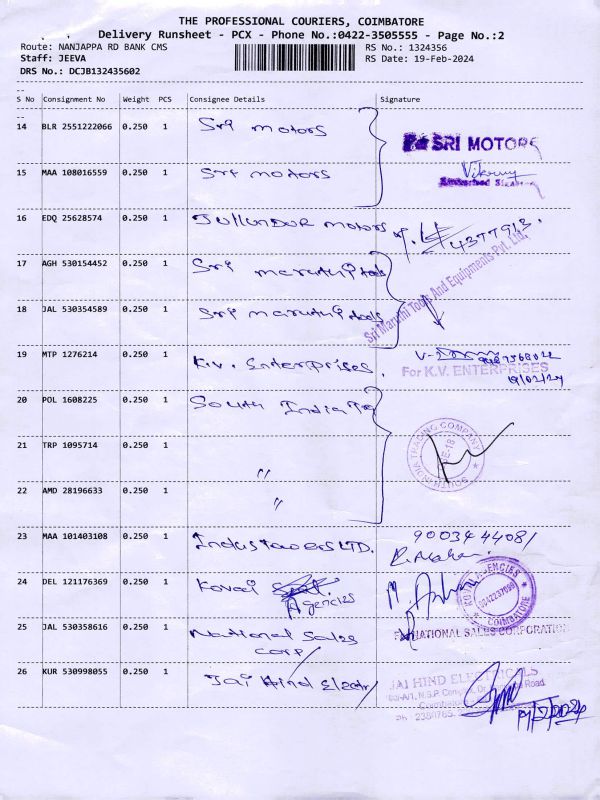 THE PROFESSIONAL COURIERS, COIMBATORE
Delivery Runsheet - PCX - Phone No.:0422-3505555 - Page No.:2
Route: NANJAPPA RD BANK CMS
RS No.: 1324356
Staff: JEEVA
RS Date: 19-Feb-2024
DRS No.: DCJB132435602
S No Consignment No Weight PCS Consignee Details Signature
14 BLR 2551222066 0.250 1 Sri motors
SRI MOTORS
15 MAA 108016559 0.250 1 Sri motors
16 EDQ 25628574 0.250 1 Jullundur motors
17 AGH 530154452 0.250 1 Sri maruthi tools
Sri Maruthi Tools And Equipments Pvt. Ltd.
18 JAL 530354589 0.250 1 Sri maruthi tools
19 MTP 1276214 0.250 1 K.V. Enterprises.
For K.V. ENTERPRISES
19/02/24
20 POL 1608225 0.250 1 South India Tra
SOUTH INDIA TRADING COMPANY
21 TRP 1095714 0.250 1 "
22 AMD 28196633 0.250 1 "
23 MAA 101403108 0.250 1 Indus Towers LTD.
9003444081
24 DEL 121176369 0.250 1 Kovai
Agencies
AGENCIES
COIMBATORE
25 JAL 530358616 0.250 1 National Sales
Corp
NATIONAL SALES CORPORATION
26 KUR 530998055 0.250 1 Jai Hind Electr
JAI HIND ELECTRICALS
19/2/2024